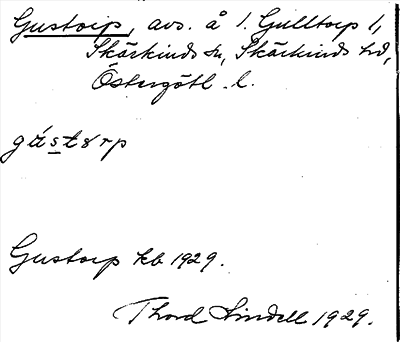 Gustorp, avs. å 1. Gulltorp 1,
Skärkinds sn, Skärkinds hd,
Östergötl. l.
gústørp
Gustorp kb 1929.
Thord Lindell 1929.